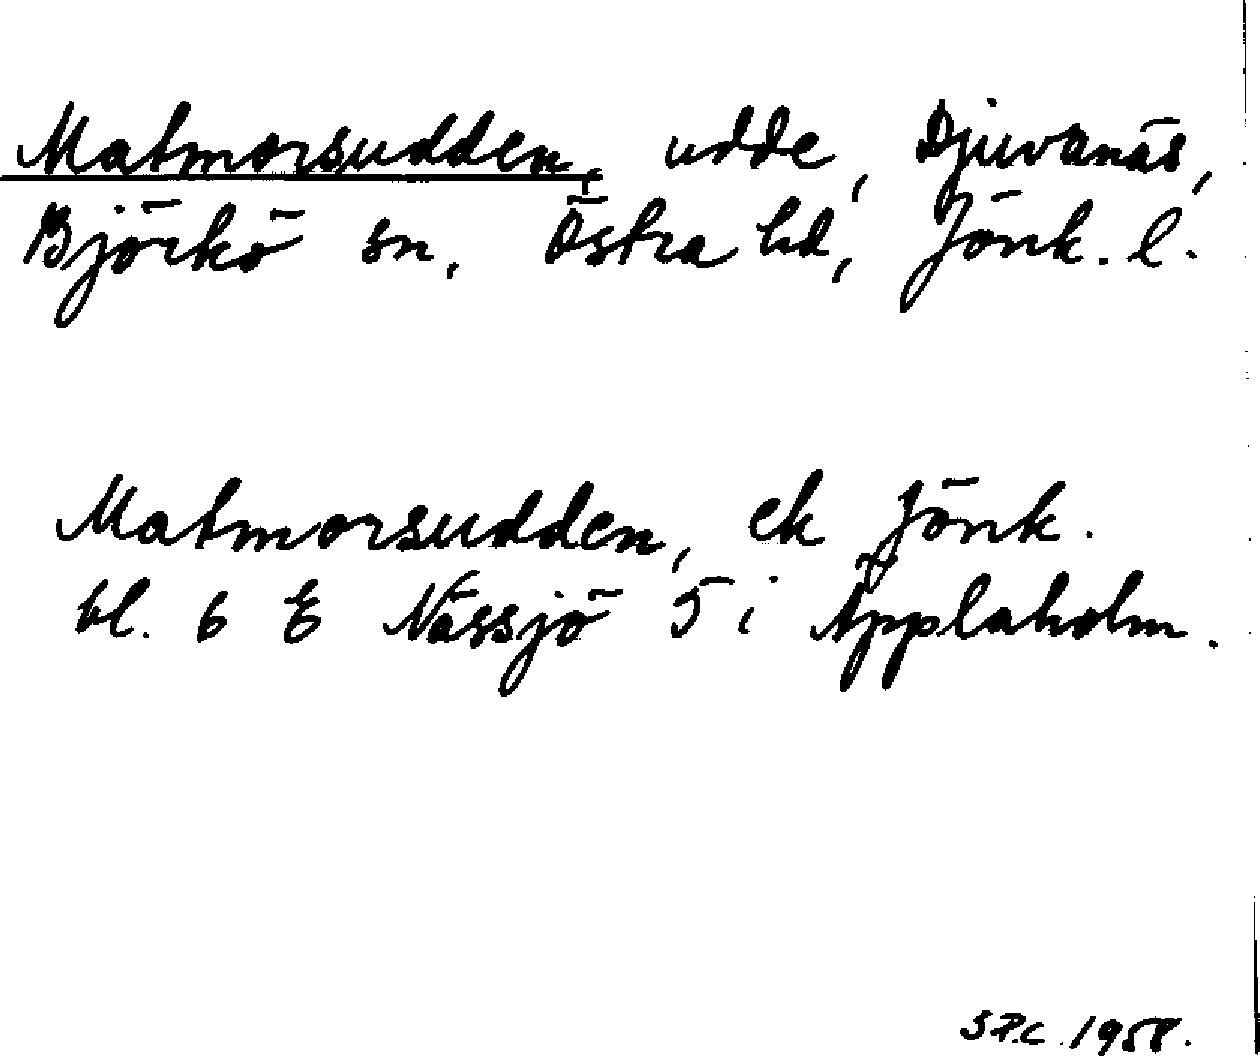 Matmorsudden, udde, Djuvanäs,
Björkö sn, Östra hd, Jönk. l.
Matmorsudden, ek Jönk.
bl. 6 E Nässjö 5 i Äpplaholm.
S.P.C. 1958.